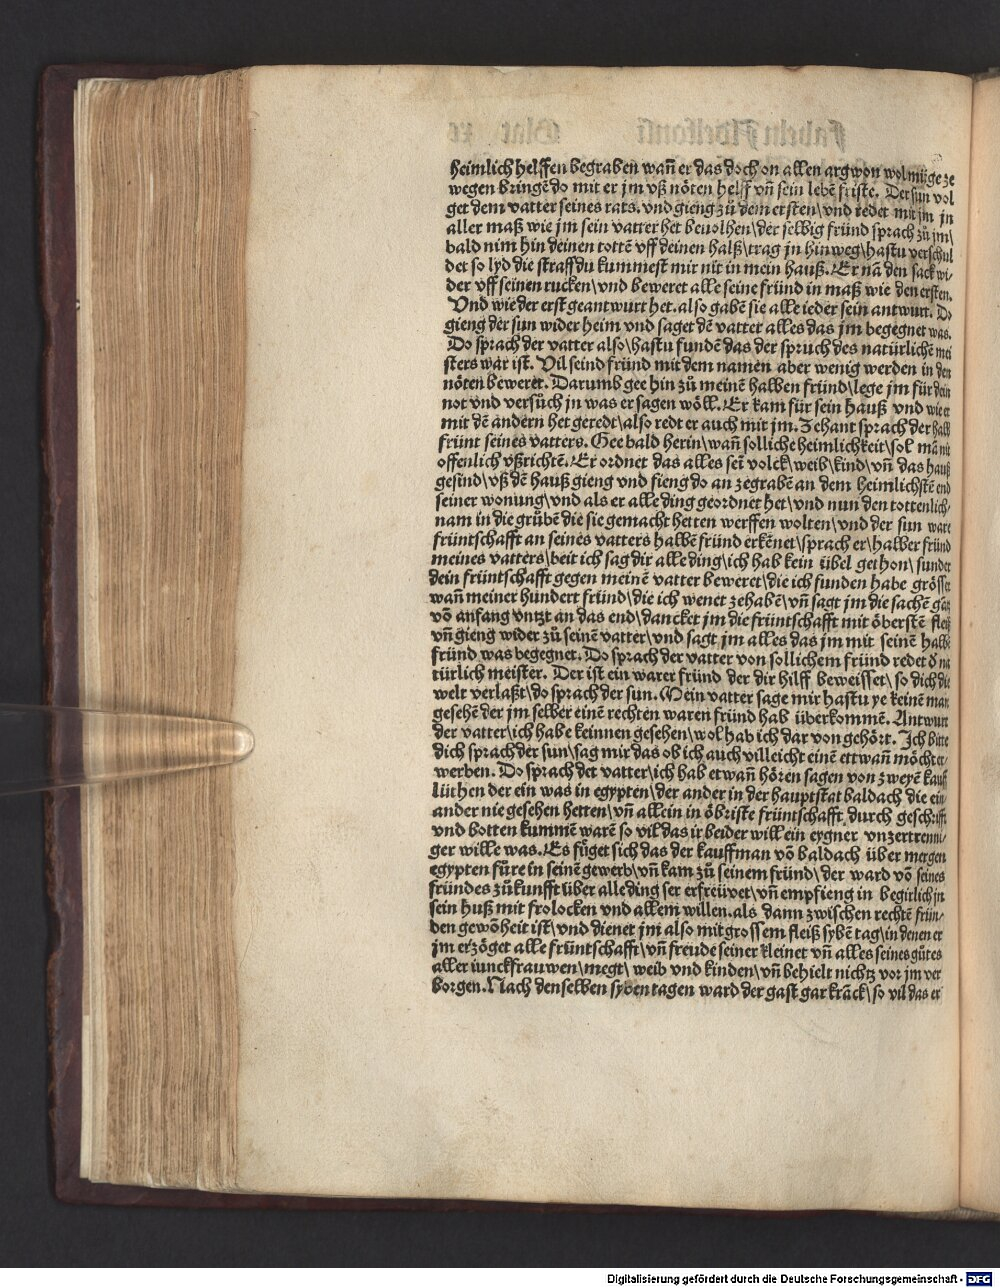 heimlich helffen begraben wañ er das doch on allen argwon wol müge ze
wegen bringē do mit er jm vß nöten helff vñ sein lebē friste. Der sun vol
get dem vatter seines rats. vnd gieng zů dem ersten\vnd redet mit jm jn
aller maß wie jm sein vatter het beuolhen\der selbig fründ sprach zů jm\
bald nim hin deinen tottē vff deinen halß\trag jn hinweg\hastu verschul
det so lyd die straff du kummest mir nit in mein hauß. Er nā den sack wi-
der vff seinen rucken\vnd beweret alle seine fründ in maß wie den ersten.
Vnd wie der erst geantwurt het. also gabē sie alle ieder sein antwurt. Do
gieng der sun wider heim vnd saget dē vatter alles das jm begegnet was.
Do sprach der vatter also\hastu fundē das der spruch des natürlichē mei
sters war ist. Vil seind fründ mit dem namen aber wenig werden in den
nöten beweret. Darumb gee hin zů meinē halben fründ\lege jm für dein
not vnd versůch jn was er sagen wöll. Er kam für sein hauß vnd wie er
mit dē andern het geredt\also redt er auch mit jm. Zehant sprach der halb
frünt seines vatters. Gee bald herin\wañ solliche heimlichkeit\sol mā nit
offenlich vßrichtē. Er ordnet das alles sein volck\weib\kind\vñ das hauß
gesind\vß dē hauß gieng vnd fieng do an zegraben an dem heimlichstē end
seiner wonung\vnd als er alle ding geordnet het\vnd nun den totten lich-
nam in die grůbē die sie gemacht hetten werffen wolten\vnd der sun ware
früntschafft an seines vatters halbē fründ erkēnet\sprach er\halber fründ
meines vatters\beit ich sag dir alle ding\ich hab kein übel gethon\sunder
dein früntschafft gegen meinē vatter beweret\die ich funden habe grösser
wañ meiner hundert fründ\die ich wenet zehabē\vñ sagt jm die sachē gār
vō anfang vntzt an das end\dancket jm die früntschafft mit öberstē fleiß
vñ gieng wider zů seinē vatter\vnd sagt jm alles das jm mit seinē halbē
fründ was begegnet. Do sprach der vatter von sollichem fründ redet d na
türlich meister. Der ist ein warer fründ der dir hilff beweisset\so dich die
welt verlaßt\do sprach der sun. Mein vatter sage mir hastu ye keinē man
gesehē der jm selber einē rechten waren fründ hab überkommē. Antwurt
der vatter\ich habe keinnen gesehen\wol hab ich dar von gehört. Ich bitte
dich sprach der sun\sag mir das ob ich auch villeicht einē ettwañ möcht er-
werben. Do sprach det vatter\ich hab etwañ hören sagen von zweyē kauff
lüthen der ein was in egypten\der ander in der hauptstat baldach die ein
ander nie gesehen hetten\vñ allein in öbriste früntschafft durch geschrifft
vnd botten kummē warē so vil das ir beider will ein eygner vnzertrenni-
ger wille was. Es füget sich das der kauffman vō baldach über mergen
egypten füre in seinē gewerb\vñ kam zů seinem fründ\der ward vō seines
fründes zůkunfft über alle ding ser erfreüvet\vñ empfieng in begirlich jn
sein huß mit frolocken vnd allem willen. als dann zwischen rechtē frün-
den gewōheit ist\vnd dienet jm also mit grossem fleiß sybē tag\in denen er
jm erzöget alle früntschafft\vñ freude seiner kleinet vñ alles seines gůtes
aller iunckfrauwen\megt\ weib vnd kinden\vñ behielt nichtz vor jm ver
borgen. Nach denselben syben tagen ward der gast gar krāck\so vil das er
Digitalisierung gefördert durch die Deutsche Forschungsgemeinschaft - DFG